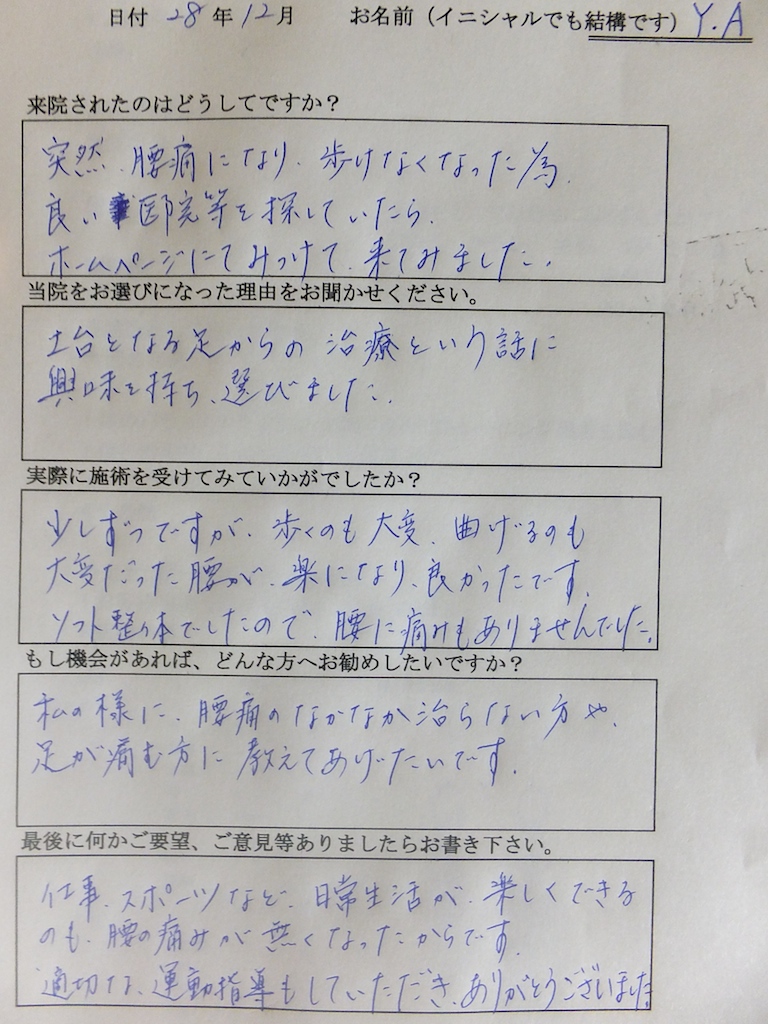 日付 28年12月 お名前（イニシャルでも結構です）Y.A
来院されたのはどうしてですか？
突然、腰痛になり、歩けなくなった為、
良い医院等を探していたら、
ホームページにてみつけて、来てみました。
当院をお選びになった理由をお聞かせください。
土台となる足からの治療という話に
興味を持ち、選びました。
実際に施術を受けてみていかがでしたか？
少しずつですが、歩くのも大変、曲げるのも
大変だった腰が、楽になり、良かったです。
ソフト整体でしたので、腰に痛みもありませんでした。
もし機会があれば、どんな方へお勧めしたいですか？
私の様に、腰痛のなかなか治らない方や、
足が痛む方に教えてあげたいです。
最後に何かご要望、ご意見等ありましたらお書き下さい。
仕事、スポーツなど、日常生活が、楽しくできる
のも、腰の痛みが無くなったからです。
適切な、運動指導もしていただき、ありがとうございました